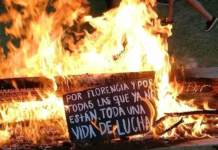 POR FLORENCIA Y POR
TODAS LAS QUE YA NO
ESTÁN. TODA UNA
VIDA DE LUCHA